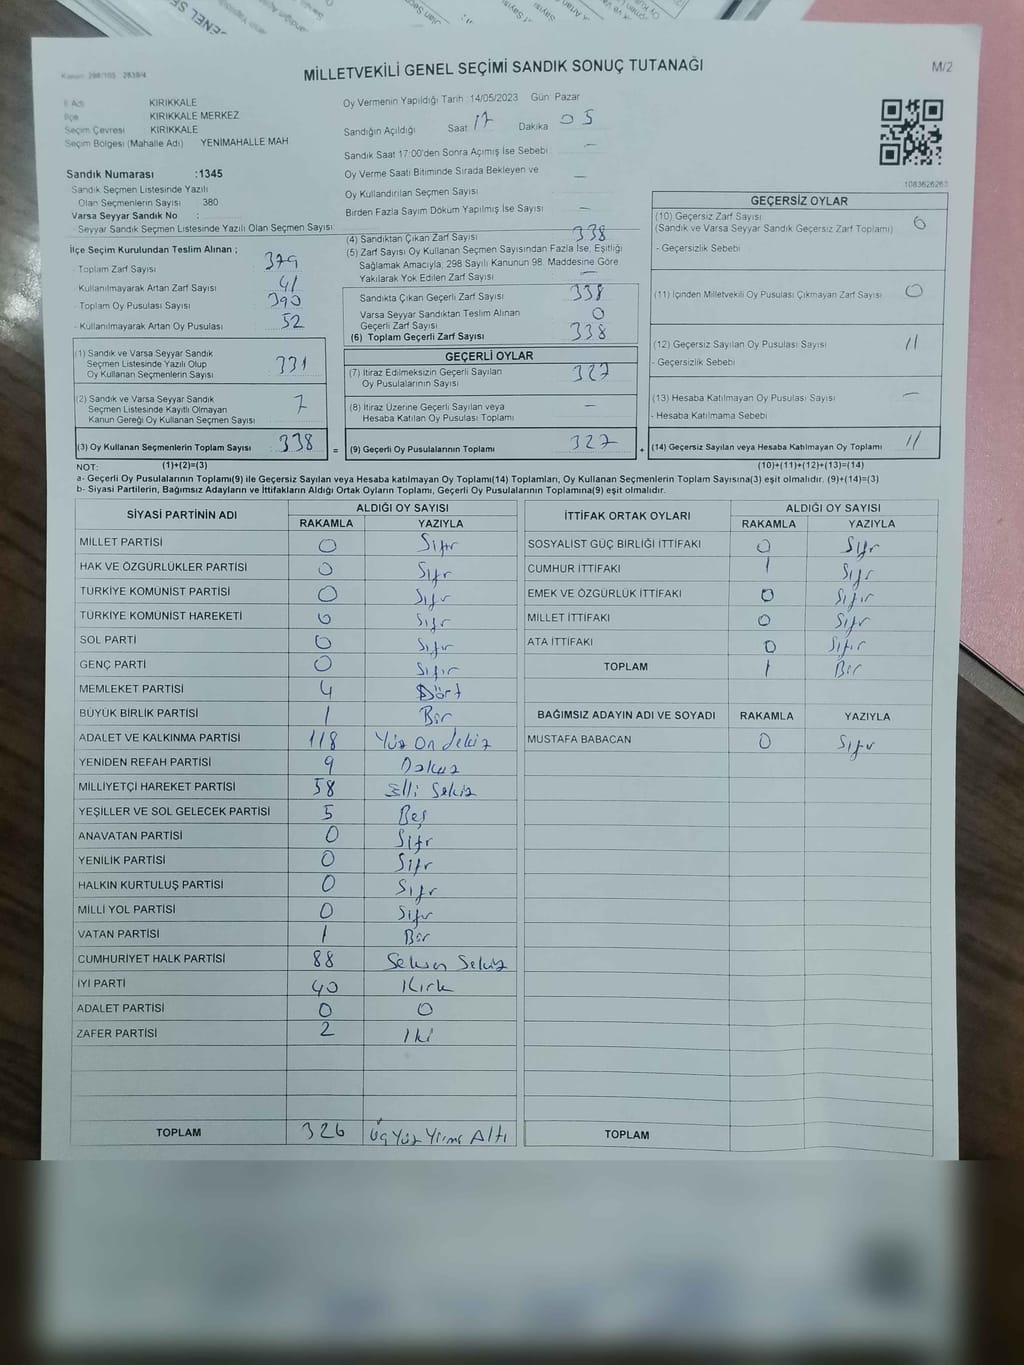 Kanun: 298/105 2839/4
MİLLETVEKİLİ GENEL SEÇİMİ SANDIK SONUÇ TUTANAĞI
M/2
İl Adı KIRIKKALE
İlçe KIRIKKALE MERKEZ
Seçim Çevresi KIRIKKALE
Seçim Bölgesi (Mahalle Adı) YENİMAHALLE MAH
Oy Vermenin Yapıldığı Tarih :14/05/2023 Gün Pazar
Sandığın Açıldığı Saat 17 Dakika 05
Sandık Saat 17:00'den Sonra Açımış İse Sebebi —
Oy Verme Saati Bitiminde Sırada Bekleyen ve
Oy Kullandırılan Seçmen Sayısı —
Birden Fazla Sayım Döküm Yapılmış İse Sayısı —
1083626263
Sandık Numarası :1345
Sandık Seçmen Listesinde Yazılı
Olan Seçmenlerin Sayısı 380
Varsa Seyyar Sandık No :
- Seyyar Sandık Seçmen Listesinde Yazılı Olan Seçmen Sayısı
İlçe Seçim Kurulundan Teslim Alınan ;
- Toplam Zarf Sayısı 379
- Kullanılmayarak Artan Zarf Sayısı 41
- Toplam Oy Pusulası Sayısı 390
- Kullanılmayarak Artan Oy Pusulası 52
(1) Sandık ve Varsa Seyyar Sandık
Seçmen Listesinde Yazılı Olup
Oy Kullanan Seçmenlerin Sayısı 331
(2) Sandık ve Varsa Seyyar Sandık
Seçmen Listesinde Kayıtlı Olmayan
Kanun Gereği Oy Kullanan Seçmen Sayısı 7
(3) Oy Kullanan Seçmenlerin Toplam Sayısı 338
(4) Sandıktan Çıkan Zarf Sayısı 338
(5) Zarf Sayısı Oy Kullanan Seçmen Sayısından Fazla İse, Eşitliği
Sağlamak Amacıyla; 298 Sayılı Kanunun 98. Maddesine Göre
Yakılarak Yok Edilen Zarf Sayısı —
Sandıkta Çıkan Geçerli Zarf Sayısı 338
Varsa Seyyar Sandıktan Teslim Alınan
Geçerli Zarf Sayısı 0
(6) Toplam Geçerli Zarf Sayısı 338
GEÇERLİ OYLAR
(7) İtiraz Edilmeksizin Geçerli Sayılan
Oy Pusulalarının Sayısı 327
(8) İtiraz Üzerine Geçerli Sayılan veya
Hesaba Katılan Oy Pusulası Toplamı —
= (9) Geçerli Oy Pusulalarının Toplamı 327
GEÇERSİZ OYLAR
(10) Geçersiz Zarf Sayısı
(Sandık ve Varsa Seyyar Sandık Geçersiz Zarf Toplamı) 0
- Geçersizlik Sebebi
(11) İçinden Milletvekili Oy Pusulası Çıkmayan Zarf Sayısı 0
(12) Geçersiz Sayılan Oy Pusulası Sayısı 11
- Geçersizlik Sebebi
(13) Hesaba Katılmayan Oy Pusulası Sayısı —
- Hesaba Katılmama Sebebi
+ (14) Geçersiz Sayılan veya Hesaba Katılmayan Oy Toplamı 11
NOT: (1)+(2)=(3) (10)+(11)+(12)+(13)=(14)
a- Geçerli Oy Pusulalarının Toplamı(9) ile Geçersiz Sayılan veya Hesaba katılmayan Oy Toplamı(14) Toplamları, Oy Kullanan Seçmenlerin Toplam Sayısına(3) eşit olmalıdır. (9)+(14)=(3)
b- Siyasi Partilerin, Bağımsız Adayların ve İttifakların Aldığı Ortak Oyların Toplamı, Geçerli Oy Pusulalarının Toplamına(9) eşit olmalıdır.
SİYASİ PARTİNİN ADI ALDIĞI OY SAYISI
RAKAMLA YAZIYLA
MİLLET PARTİSİ 0 Sıfır
HAK VE ÖZGÜRLÜKLER PARTİSİ 0 Sıfır
TÜRKİYE KOMÜNİST PARTİSİ 0 Sıfır
TÜRKİYE KOMÜNİST HAREKETİ 0 Sıfır
SOL PARTİ 0 Sıfır
GENÇ PARTİ 0 Sıfır
MEMLEKET PARTİSİ 4 Dört
BÜYÜK BİRLİK PARTİSİ 1 Bir
ADALET VE KALKINMA PARTİSİ 118 Yüz On Sekiz
YENİDEN REFAH PARTİSİ 9 Dokuz
MİLLİYETÇİ HAREKET PARTİSİ 58 Elli Sekiz
YEŞİLLER VE SOL GELECEK PARTİSİ 5 Beş
ANAVATAN PARTİSİ 0 Sıfır
YENİLİK PARTİSİ 0 Sıfır
HALKIN KURTULUŞ PARTİSİ 0 Sıfır
MİLLİ YOL PARTİSİ 0 Sıfır
VATAN PARTİSİ 1 Bir
CUMHURİYET HALK PARTİSİ 88 Seksen Sekiz
İYİ PARTİ 40 Kırk
ADALET PARTİSİ 0 0
ZAFER PARTİSİ 2 İki
TOPLAM 326 Üç Yüz Yirmi Altı
İTTİFAK ORTAK OYLARI ALDIĞI OY SAYISI
RAKAMLA YAZIYLA
SOSYALİST GÜÇ BİRLİĞİ İTTİFAKI 0 Sıfır
CUMHUR İTTİFAKI 1 Sıfır
EMEK VE ÖZGÜRLÜK İTTİFAKI 0 Sıfır
MİLLET İTTİFAKI 0 Sıfır
ATA İTTİFAKI 0 Sıfır
TOPLAM 1 Bir
BAĞIMSIZ ADAYIN ADI VE SOYADI RAKAMLA YAZIYLA
MUSTAFA BABACAN 0 Sıfır
TOPLAM